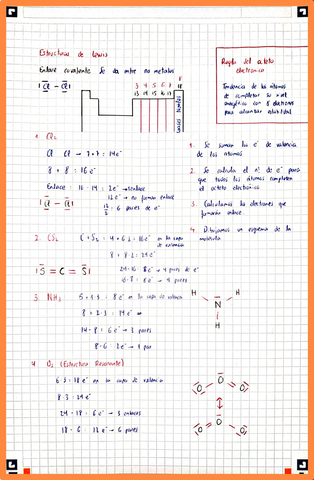 Estructuras de Lewis
Enlace covalente Se da entre no metales
|Cl - Cl|
3 4 5 6 7 8
13 14 15 16 17 18
Gases Nobles
Regla del octeto electrónico
Tendencia de los átomos
de completar su nivel
energético con 8 electrones
para alcanzar estabilidad
1. Cl₂
Cl Cl → 7+7 = 14e⁻
8 + 8 = 16e⁻
Enlace: 16-14 = 2e⁻ → enlace
12e⁻ → no forman enlace
12/2 = 6 pares de e⁻
|Cl - Cl|
1. Se suman los e⁻ de valencia
de los átomos
2. Se calcula el nº de e⁻ para
que todos los átomos completen
el octeto electrónico
3. Calculamos los electrones que
formarán enlace
4. Dibujamos un esquema de la
molécula
2. CS₂ C+S₂ = 4+6·2 = 16e⁻ en la capa
de valencia
8 + 8·2 = 24e⁻
|S = C = S|
24-16 = 8e⁻ → 4 pares de e⁻
16-8 = 8e⁻ → 4 pares
3. NH₃ 5+1·3 = 8e⁻ en la capa de valencia
8 + 2·3 = 14e⁻
14-8 = 6e⁻ → 3 pares
8-6 = 2e⁻ → 1 par
H N H
H
4. O₃ (Estructura Resonante)
6·3 = 18e⁻ en la capa de valencia
8·3 = 24e⁻
24-18 = 6e⁻ → 3 enlaces
18-6 = 12e⁻ → 6 pares
O
O O
O
O O